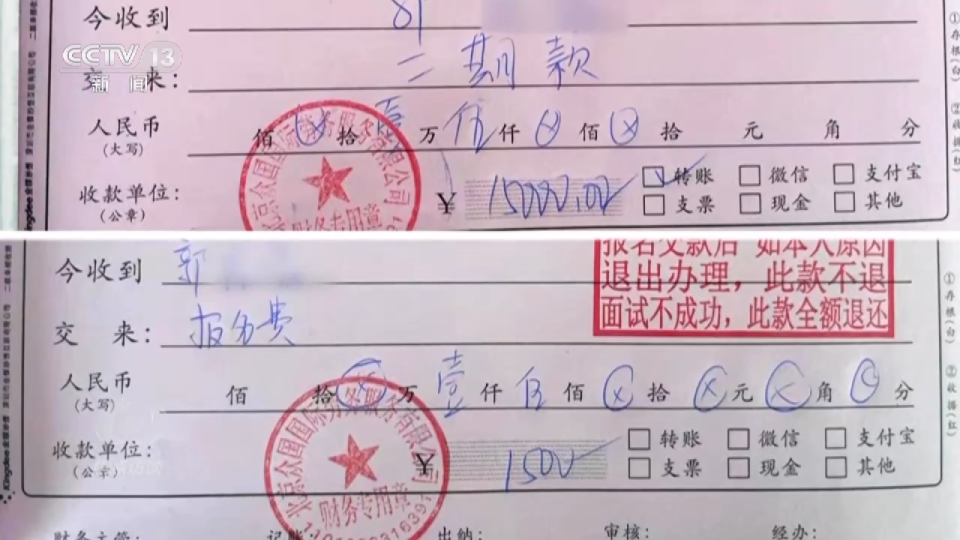 CCTV 13
新闻
今收到
二期款
交 来：
人民币 佰 拾 壹 万 伍 仟 佰 拾 元 角 分
(大写)
收款单位： ¥ 15000.00 转账 微信 支付宝
(公章) 支票 现金 其他
北京众国国际劳务服务有限公司
财务专用章
①存根(白)
②收据(红)
今收到 郭
报名交款后 如本人原因
退出办理，此款不退
面试不成功，此款全额退还
交 来： 报名费
人民币 佰 拾 万 壹 仟 伍 佰 拾 元 角 分
(大写)
收款单位： ¥ 1500 转账 微信 支付宝
(公章) 支票 现金 其他
北京众国国际劳务服务有限公司
财务专用章
Kingdee
①存根(白)
②收据(红)
财务主管： 记账： 出纳： 审核： 经办：